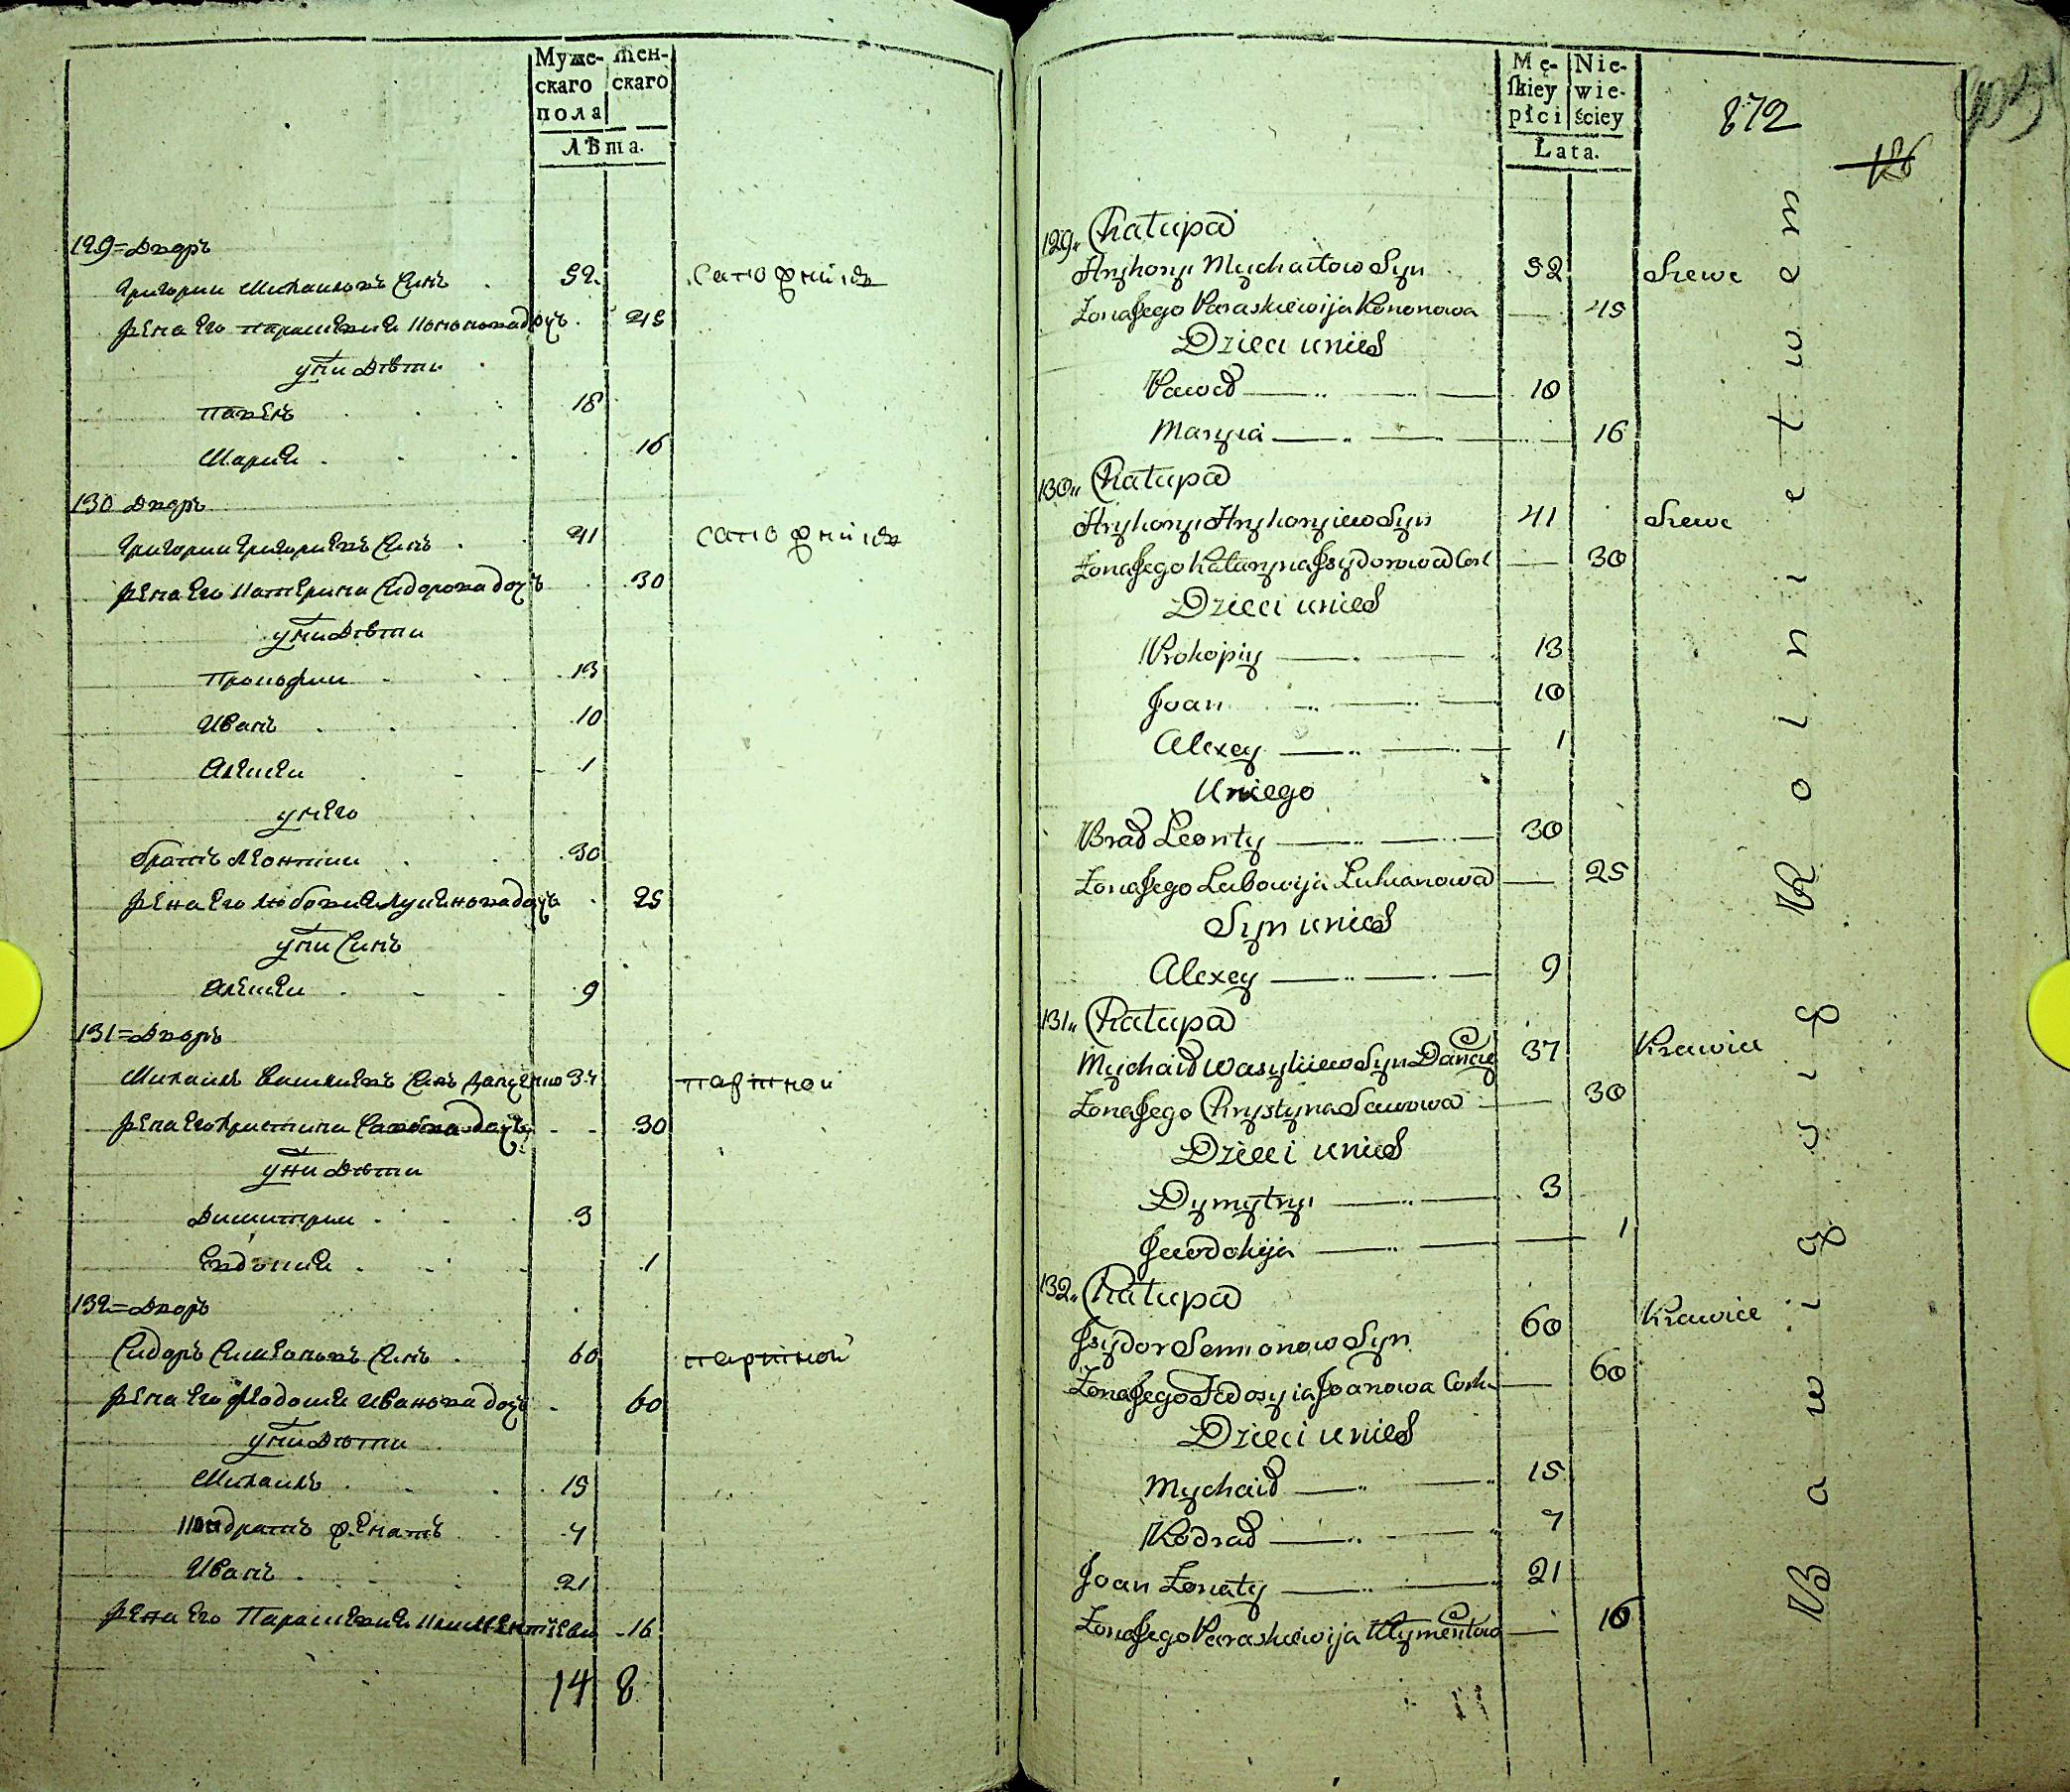 Муже-
скаго
пола
Жен-
скаго
Лѣта.
129= Дворъ
Григории Михаиловъ Синъ 52 Сапожникъ
Жена Его Параскевия Кононова доч. 45
у ни Дѣти
Павелъ 18
Мария 16
130 Дворъ
Григории Григориевъ Синъ 41 сапожникъ
Жена Его Катерина Сидорова доч. 30
у ни Дѣти
Прокофии 13
Иванъ 10
Алексеи 1
у него
братъ Леонтии 30
Жена Его Любовия Лукянова доч. 25
у ни Синъ
Алексеи 9
131= Дворъ
Михаилъ Василиевъ Синъ 37 партной
Жена Его Христина Савова доч. 30
у ни Дѣти
Димитрии 3
Евдокия 1
132= Дворъ
Сидоръ Симеоновъ Синъ 60 партной
Жена Его Феодосия Иванова доч. 60
у ни Дѣти
Михаилъ 15
Кондратъ 7
Иванъ 21
Жена Его Параскевия 16
14 8
Mę-
ſkiey
płci
Nie-
wie-
ściey
Lata.
872
186
129. Chałupa
Hryhoryi Mychaiłow Syn 52 Szewc
Zona Jego Paraskiewija Kononowa 45
Dzieci u nich
Paweł 18
Maryia 16
130. Chałupa
Hryhoryi Hryhoryiew Syn 41 Szewc
Zona Jego Katarzyna Jsydorowa Cork 30
Dzieci u nich
Prokopiy 13
Joan 10
Alexey 1
U niego
Brad Leonty 30
Zona Jego Lubowija Lukianowa 25
Syn u nich
Alexey 9
131. Chałupa
Mychaił Wasyliew Syn 37 Krawiec
Zona Jego Chrystyna Sawowa 30
Dzieci u nich
Dymytryi 3
Jewdokija 1
132. Chałupa
Jsydor Semionow Syn 60 Krawiec
Zona Jego Fedosyia Joanowa Cork 60
Dzieci u nich
Mychaił 15
Kodrad 7
Joan Zonaty 21
Zona Jego Paraskiewija Klymentow 16
Bawią się Rolnictwem